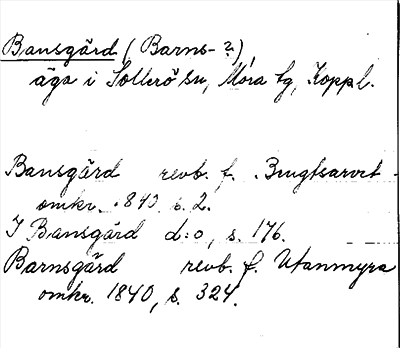 Bansgärd (Barns-?),
äga i Sollerö sn, Mora tg, Koppl.
Bansgärd revb. f. Bengtsarvet
omkr. 1840 s. 2.
I Bansgärd d:o, s. 176.
Barnsgärd revb. f. Utanmyra
omkr. 1840, s. 324.